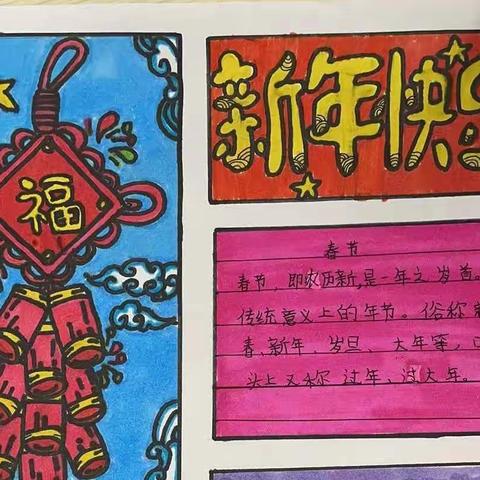 福
新年快乐
春节
春节，即农历新,是一年之岁首。
传统意义上的年节。俗称
春、新年、岁旦、大年等，口
头上又称过年、过大年。